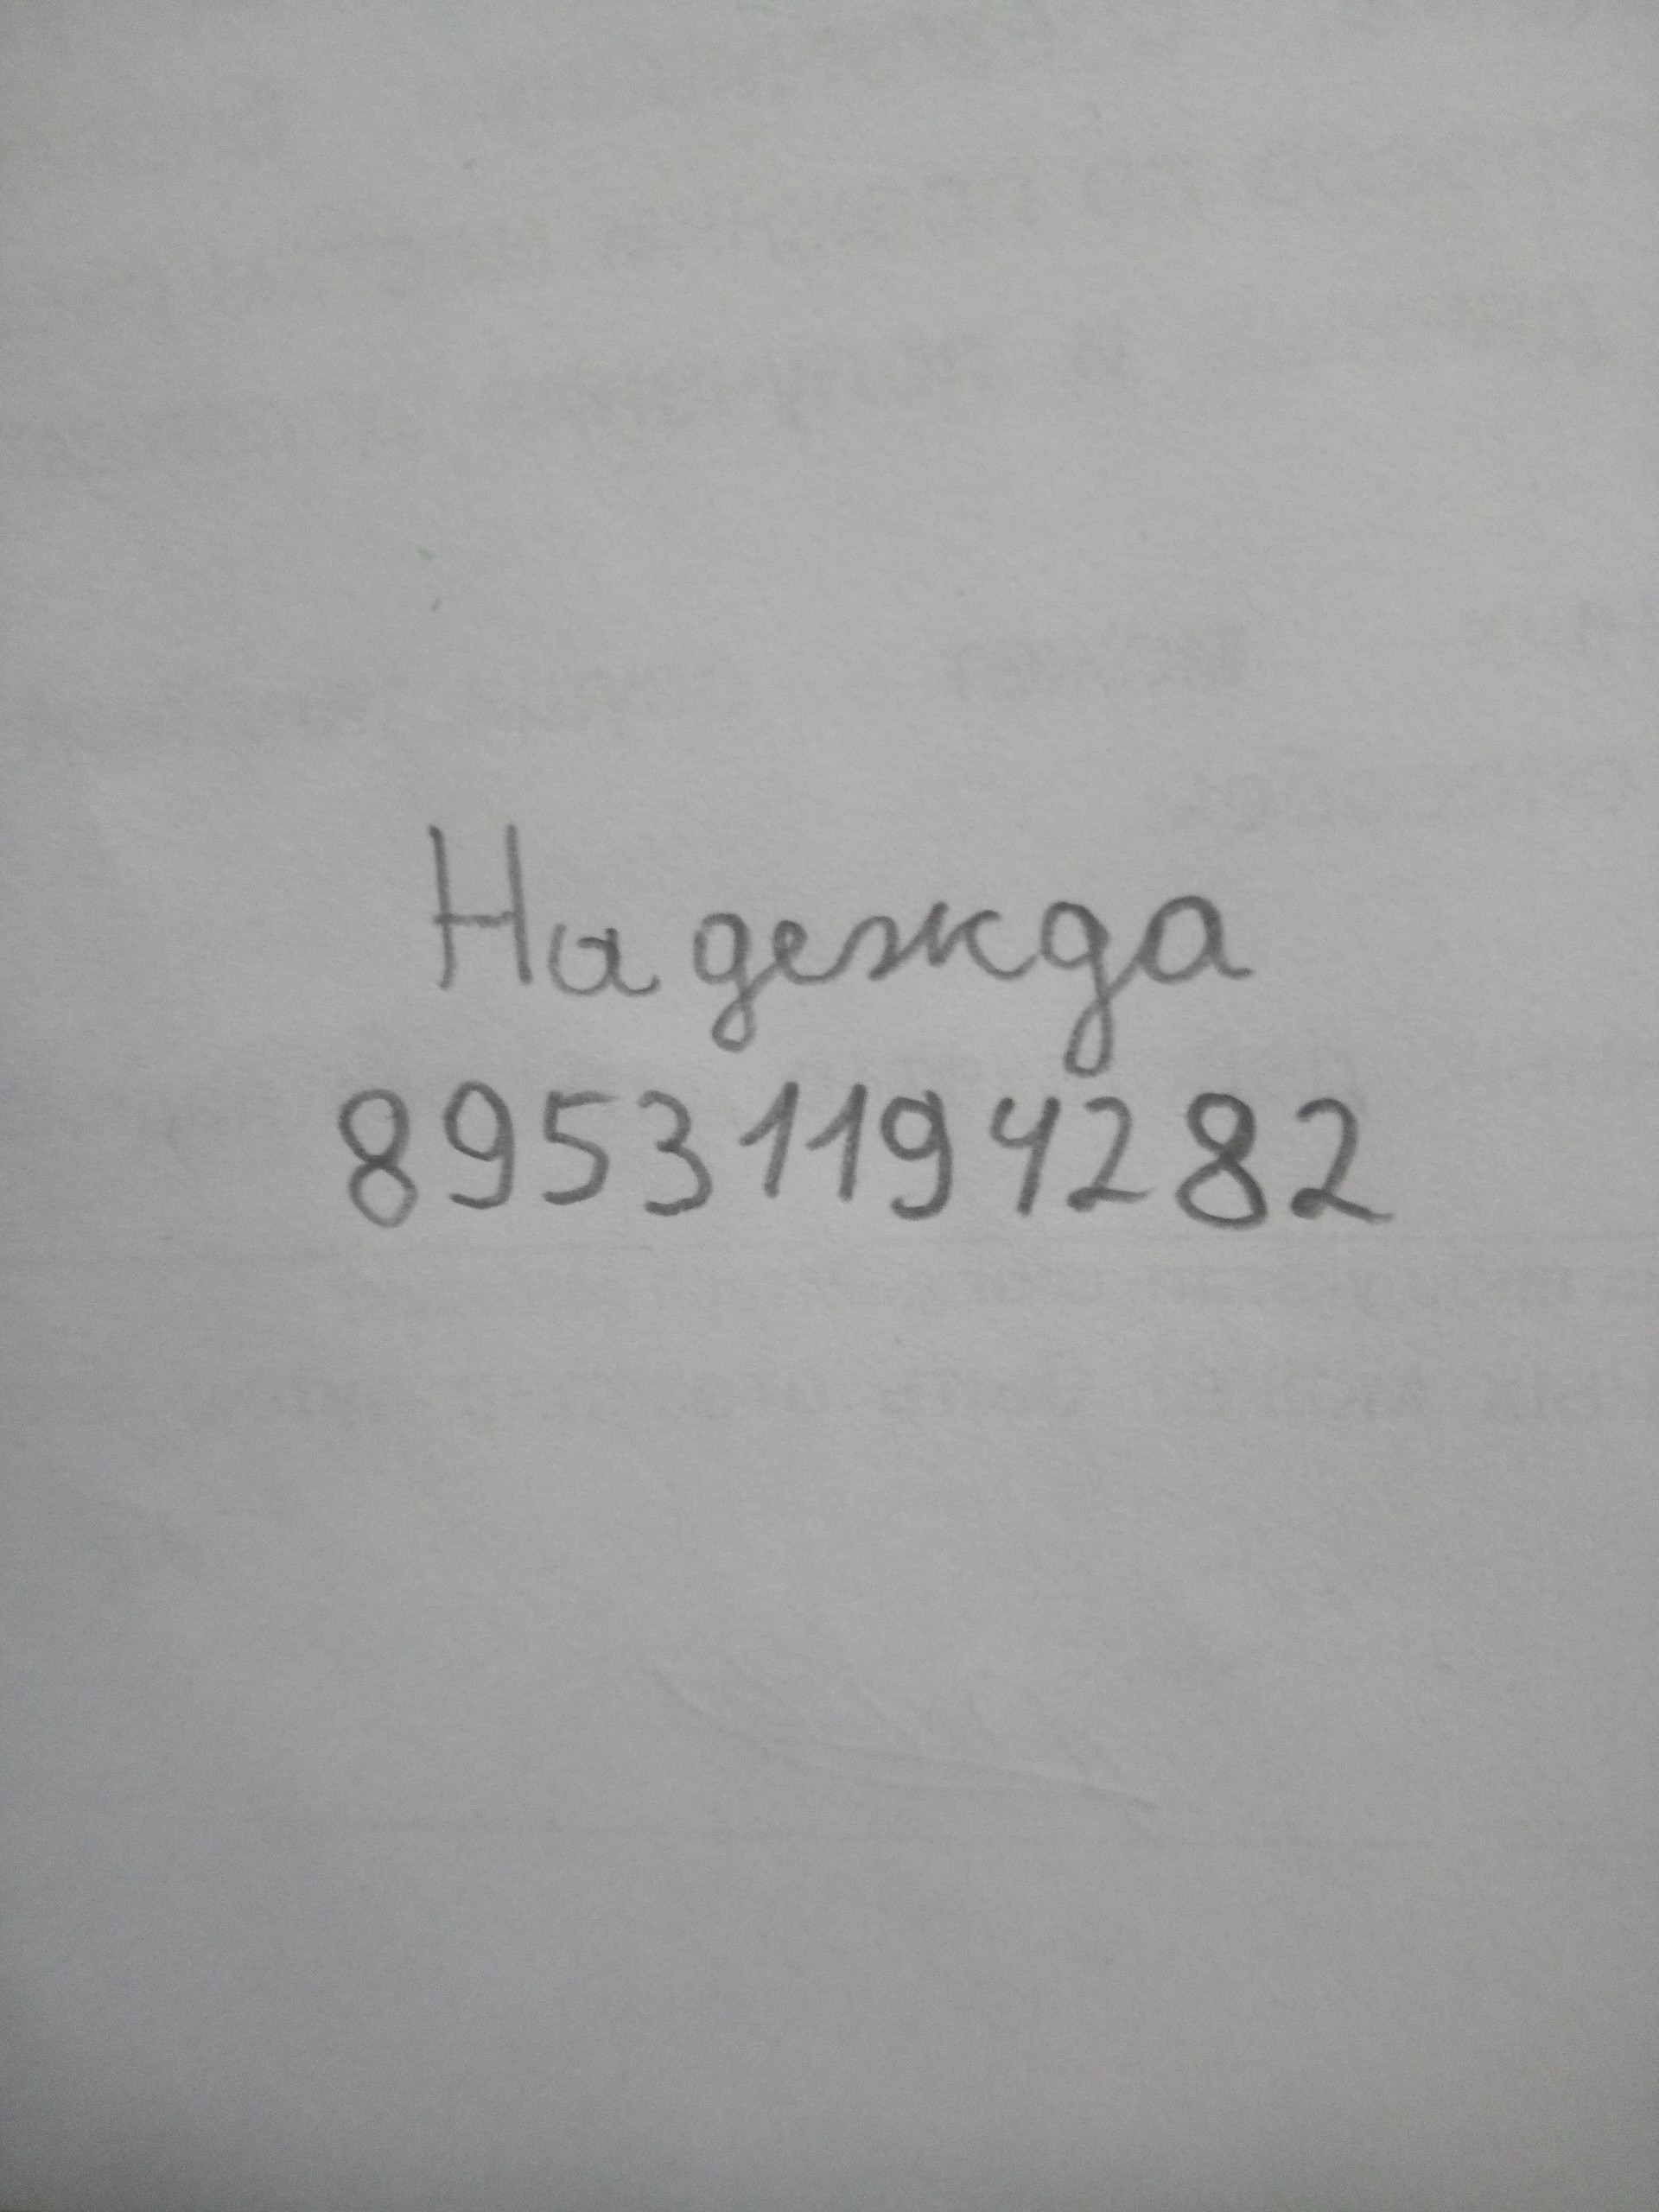 Надежда
89531194282